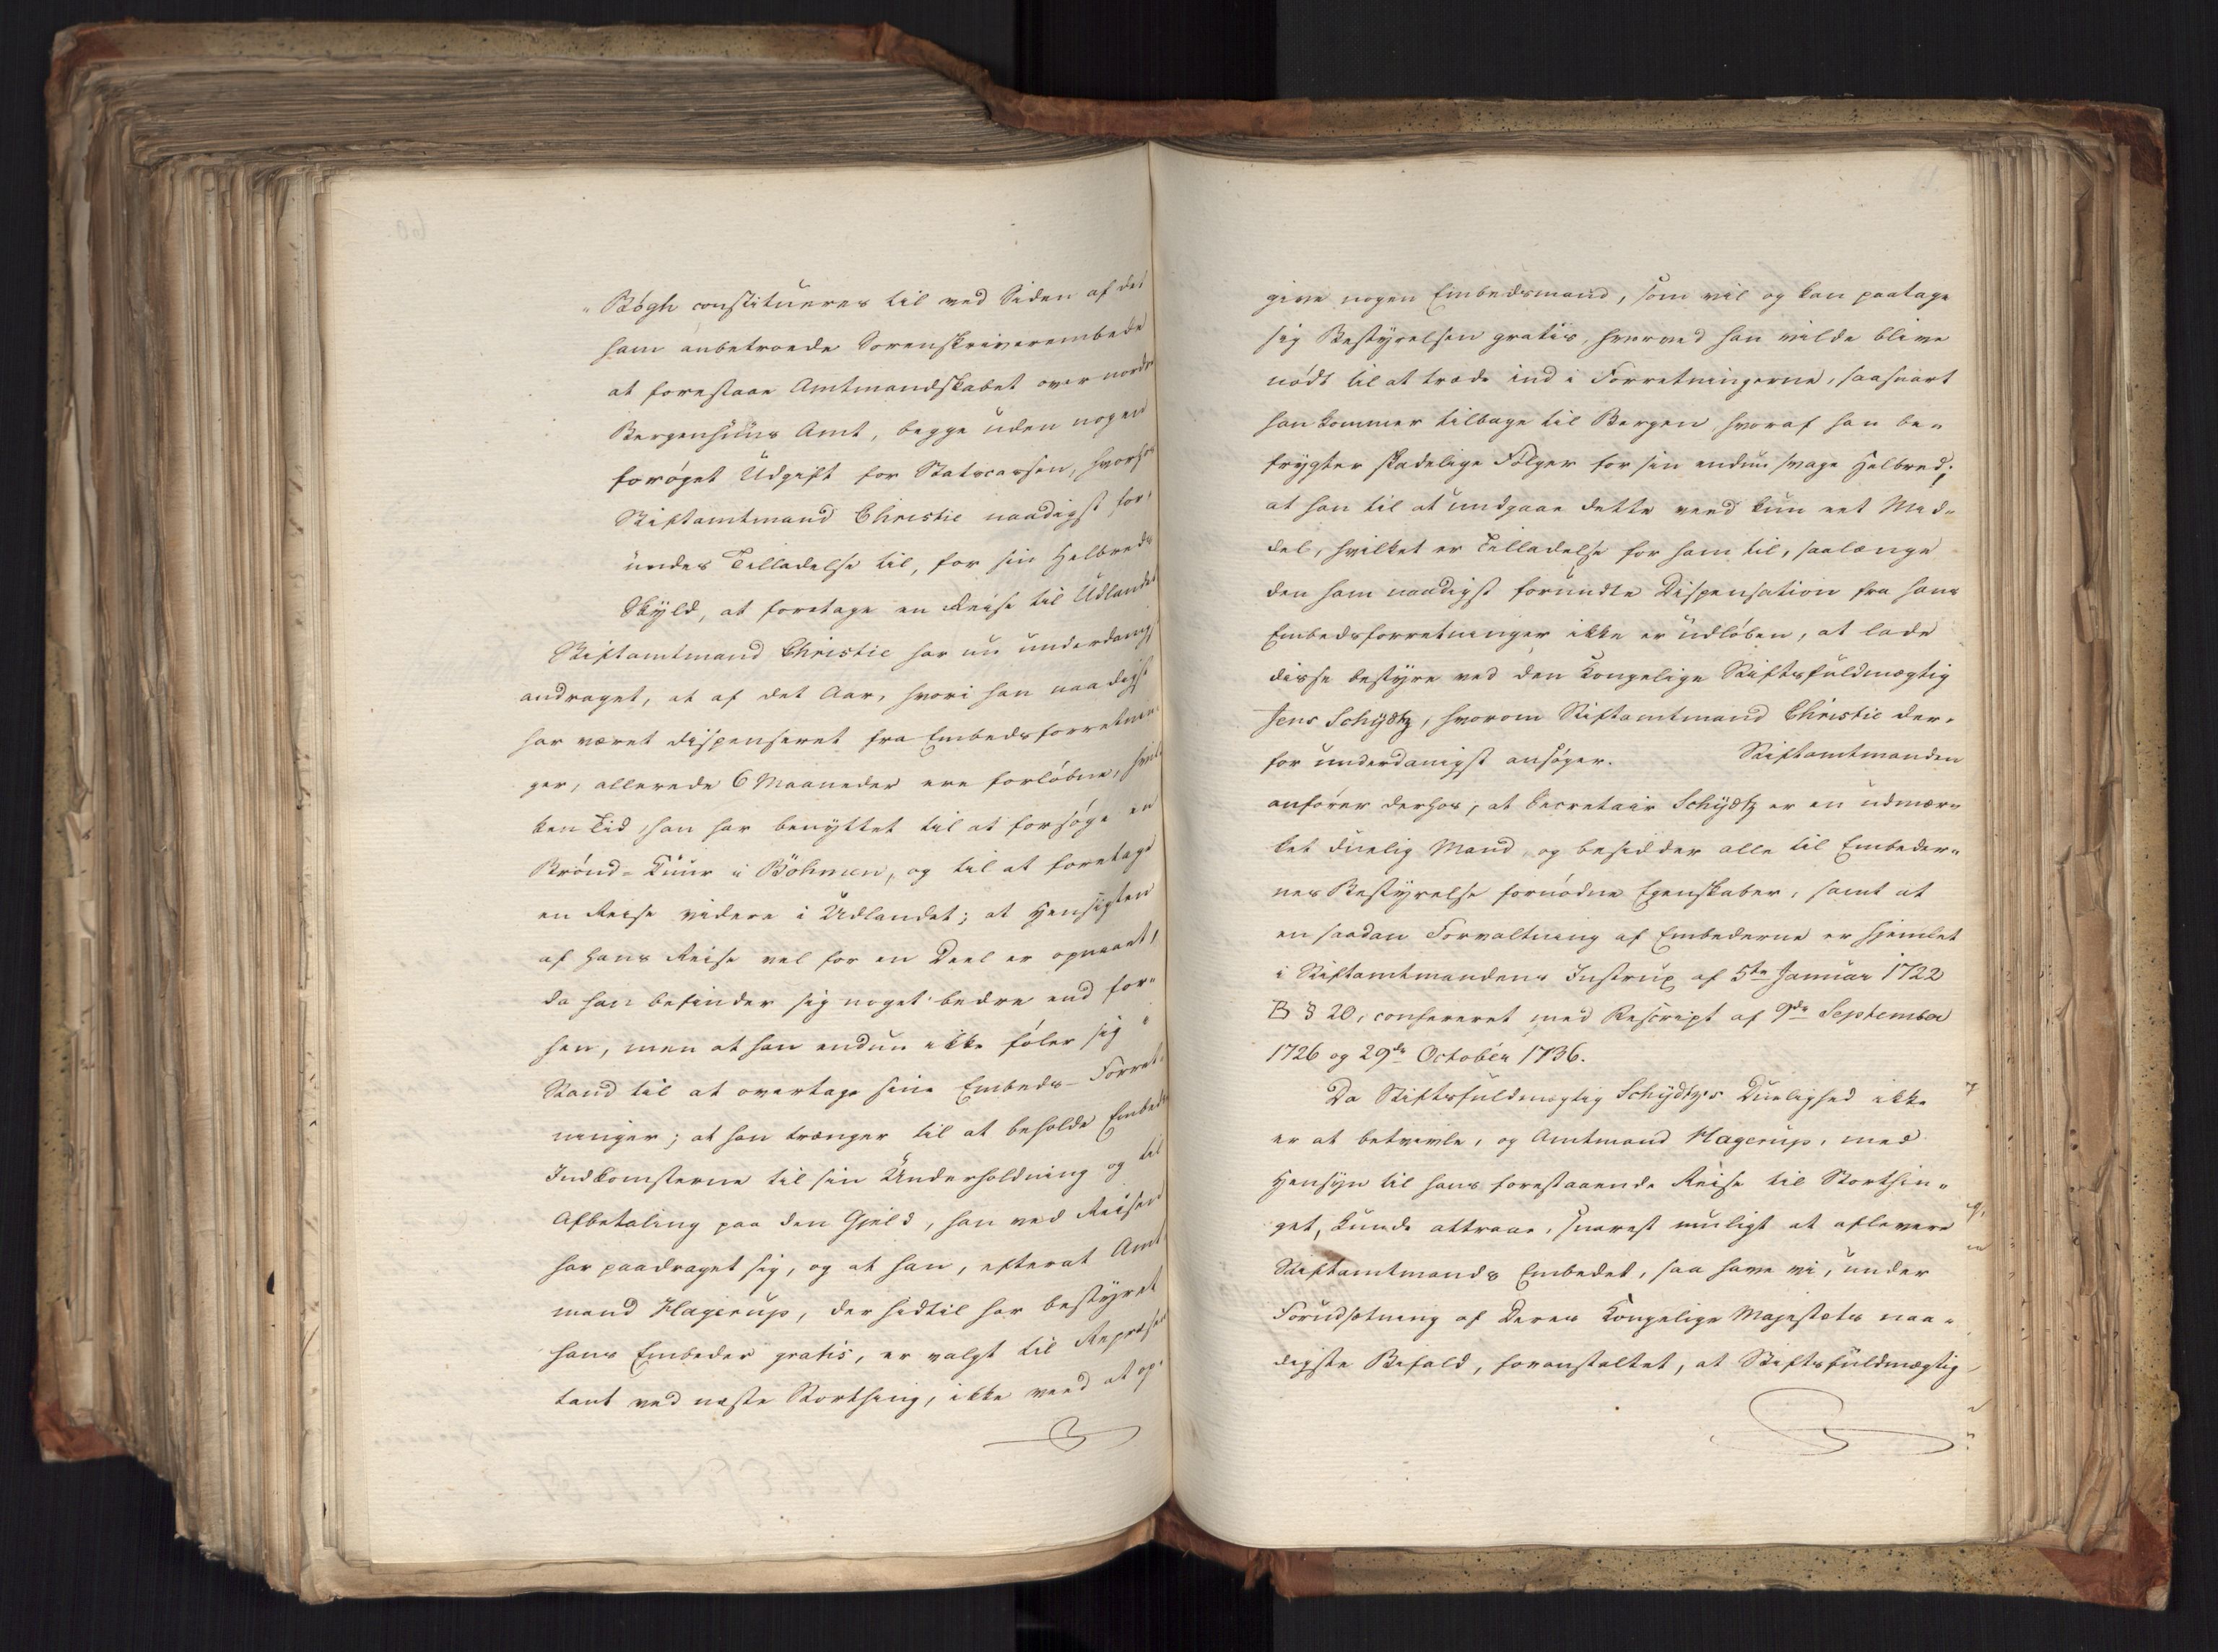 „Bøgh constitueres til ved Siden af det
ham anbetroede Sorenskriverembede
at forestaae Amtmandskabet over nordre
Bergenhuus Amt, begge uden nogen
forøget Udgift for Statscassen, hvorhos
Stiftamtmand Christie naadigst for„
undes Tilladelse til, for sin Helbreds
Skyld, at foretage en Reise til Udlandet
Stiftamtmand Christie har nu underdanigst
andraget, at af det Aar, hvori han naadigst
har været dispenseret fra Embedsforretnin„
ger, allerede 6 Maaneder ere forløbne, hvil„
ken Tid han har benyttet til at forsøge en
Brønd-Kuur i Böhmen, og til at foretage
en Reise videre i Udlandet; at Hensigten
af hans Reise vel for en Deel er opnaaet,
da han befinder sig noget bedre end for„
hen, men at han endnu ikke føler sig i
Stand til at overtage sine Embeds-Forret„
ninger; at han trænger til at beholde Embeds
Indkomsterne til sin Underholdning og til
Afbetaling paa den Gjeld, han ved Reisen
har paadraget sig, og at han, efterat Amt„
mand Hagerup, der hidtil har bestyret
hans Embeder gratis, er valgt til Repræsen
tant ved næste Storthing, ikke veed at op„
give nogen Embedsmand, som vil og kan paatage
sig Bestyrelsen gratis, hvorved han vilde blive
nødt til at træde ind i Forretningerne, saasnart
han kommer tilbage til Bergen, hvoraf han be„
frygter skadelige Følger for sin endnu svage Helbred;
at han til at undgaae dette veed kun eet Mid„
del, hvilket er Tilladelse for ham til, saalænge
den ham naadigst forundte Dispensation fra hans
Embedsforretninger ikke er udløben, at lade
disse bestyre ved den Kongelige Stiftsfuldmægtig
Jens Schydtz, hvorom Stiftamtmand Christie der„
for underdanigst ansøger. Stiftamtmanden
anfører derhos, at Secretair Schydtz er en udmær„
ket duelig Mand, og besidder alle til Embeder„
nes Bestyrelse fornødne Egenskaber, samt at
en saadan Forvaltning af Embederne er hjemlet
i Stiftamtmandens Instrux af 5te Januar 1722
B § 20, confereret med Rescript af 9de September
1726 og 29de October 1736.
Da Stiftsfuldmægtig Schydtz's Duelighed ikke
er at betvivle, og Amtmand Hagerup, med
Hensyn til hans forestaaende Reise til Storthin„
get, kunde attraae, snarest muligt at aflevere
Stiftamtmands Embedet, saa have vi, under
Forudsætning af Deres Kongelige Majestæts naa„
digste Bifald, foranstaltet, at Stiftsfuldmægtig